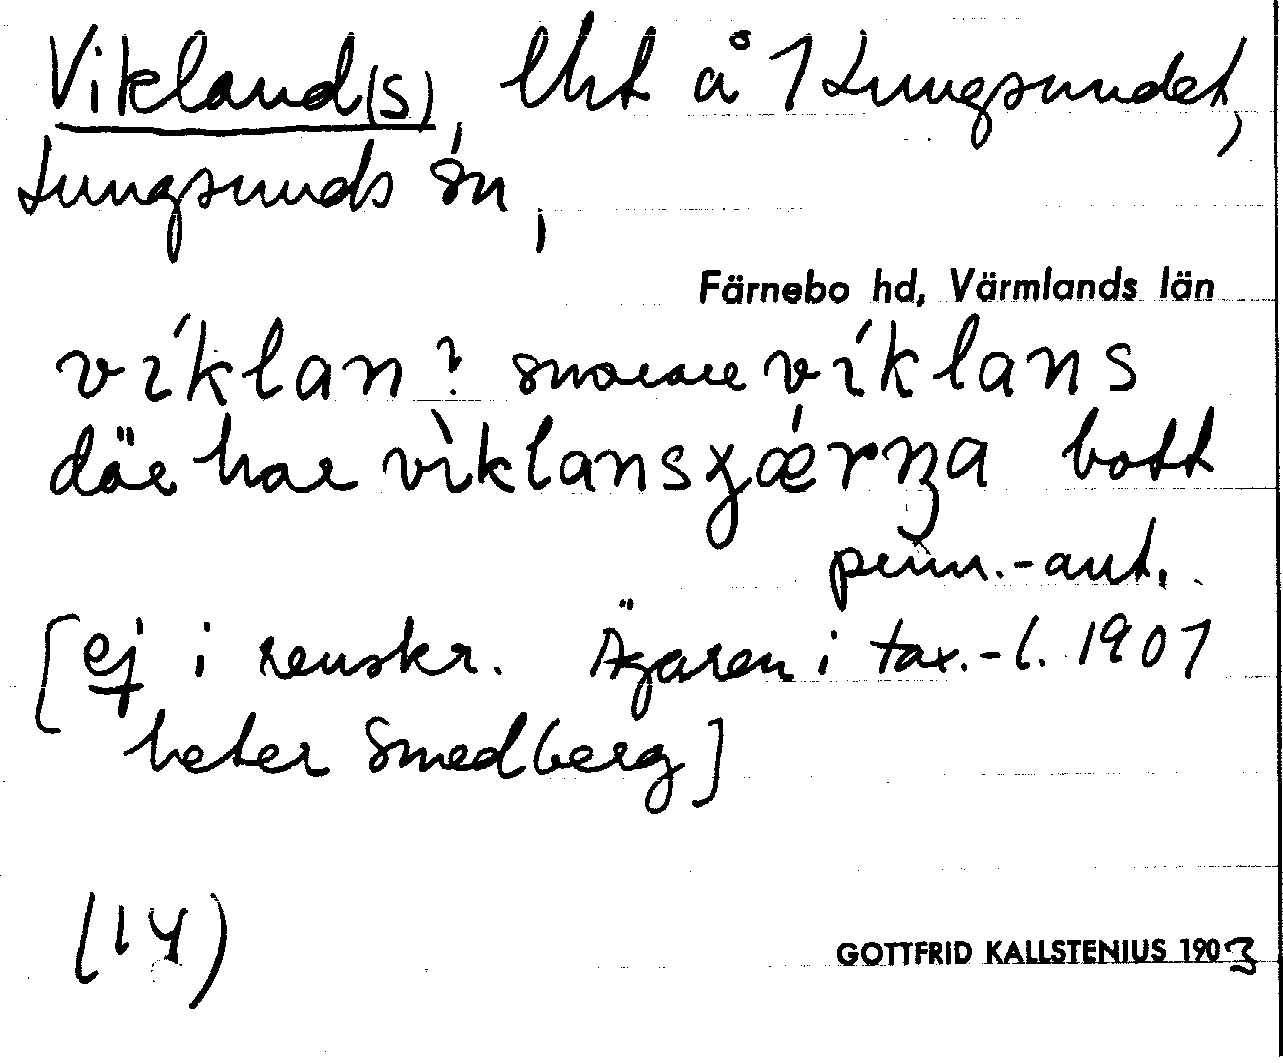 Vikland(s), lht å 1 Lungsundet,
Lungsunds sn,
Färnebo hd, Värmlands län
víklan? snarare víklans
där har vìklansɟǽrŋa bott
penn.-ant.
[ej i renskr. Ägaren i tax.-l. 1901
heter Smedberg]
(14)
GOTTFRID KALLSTENIUS 1903